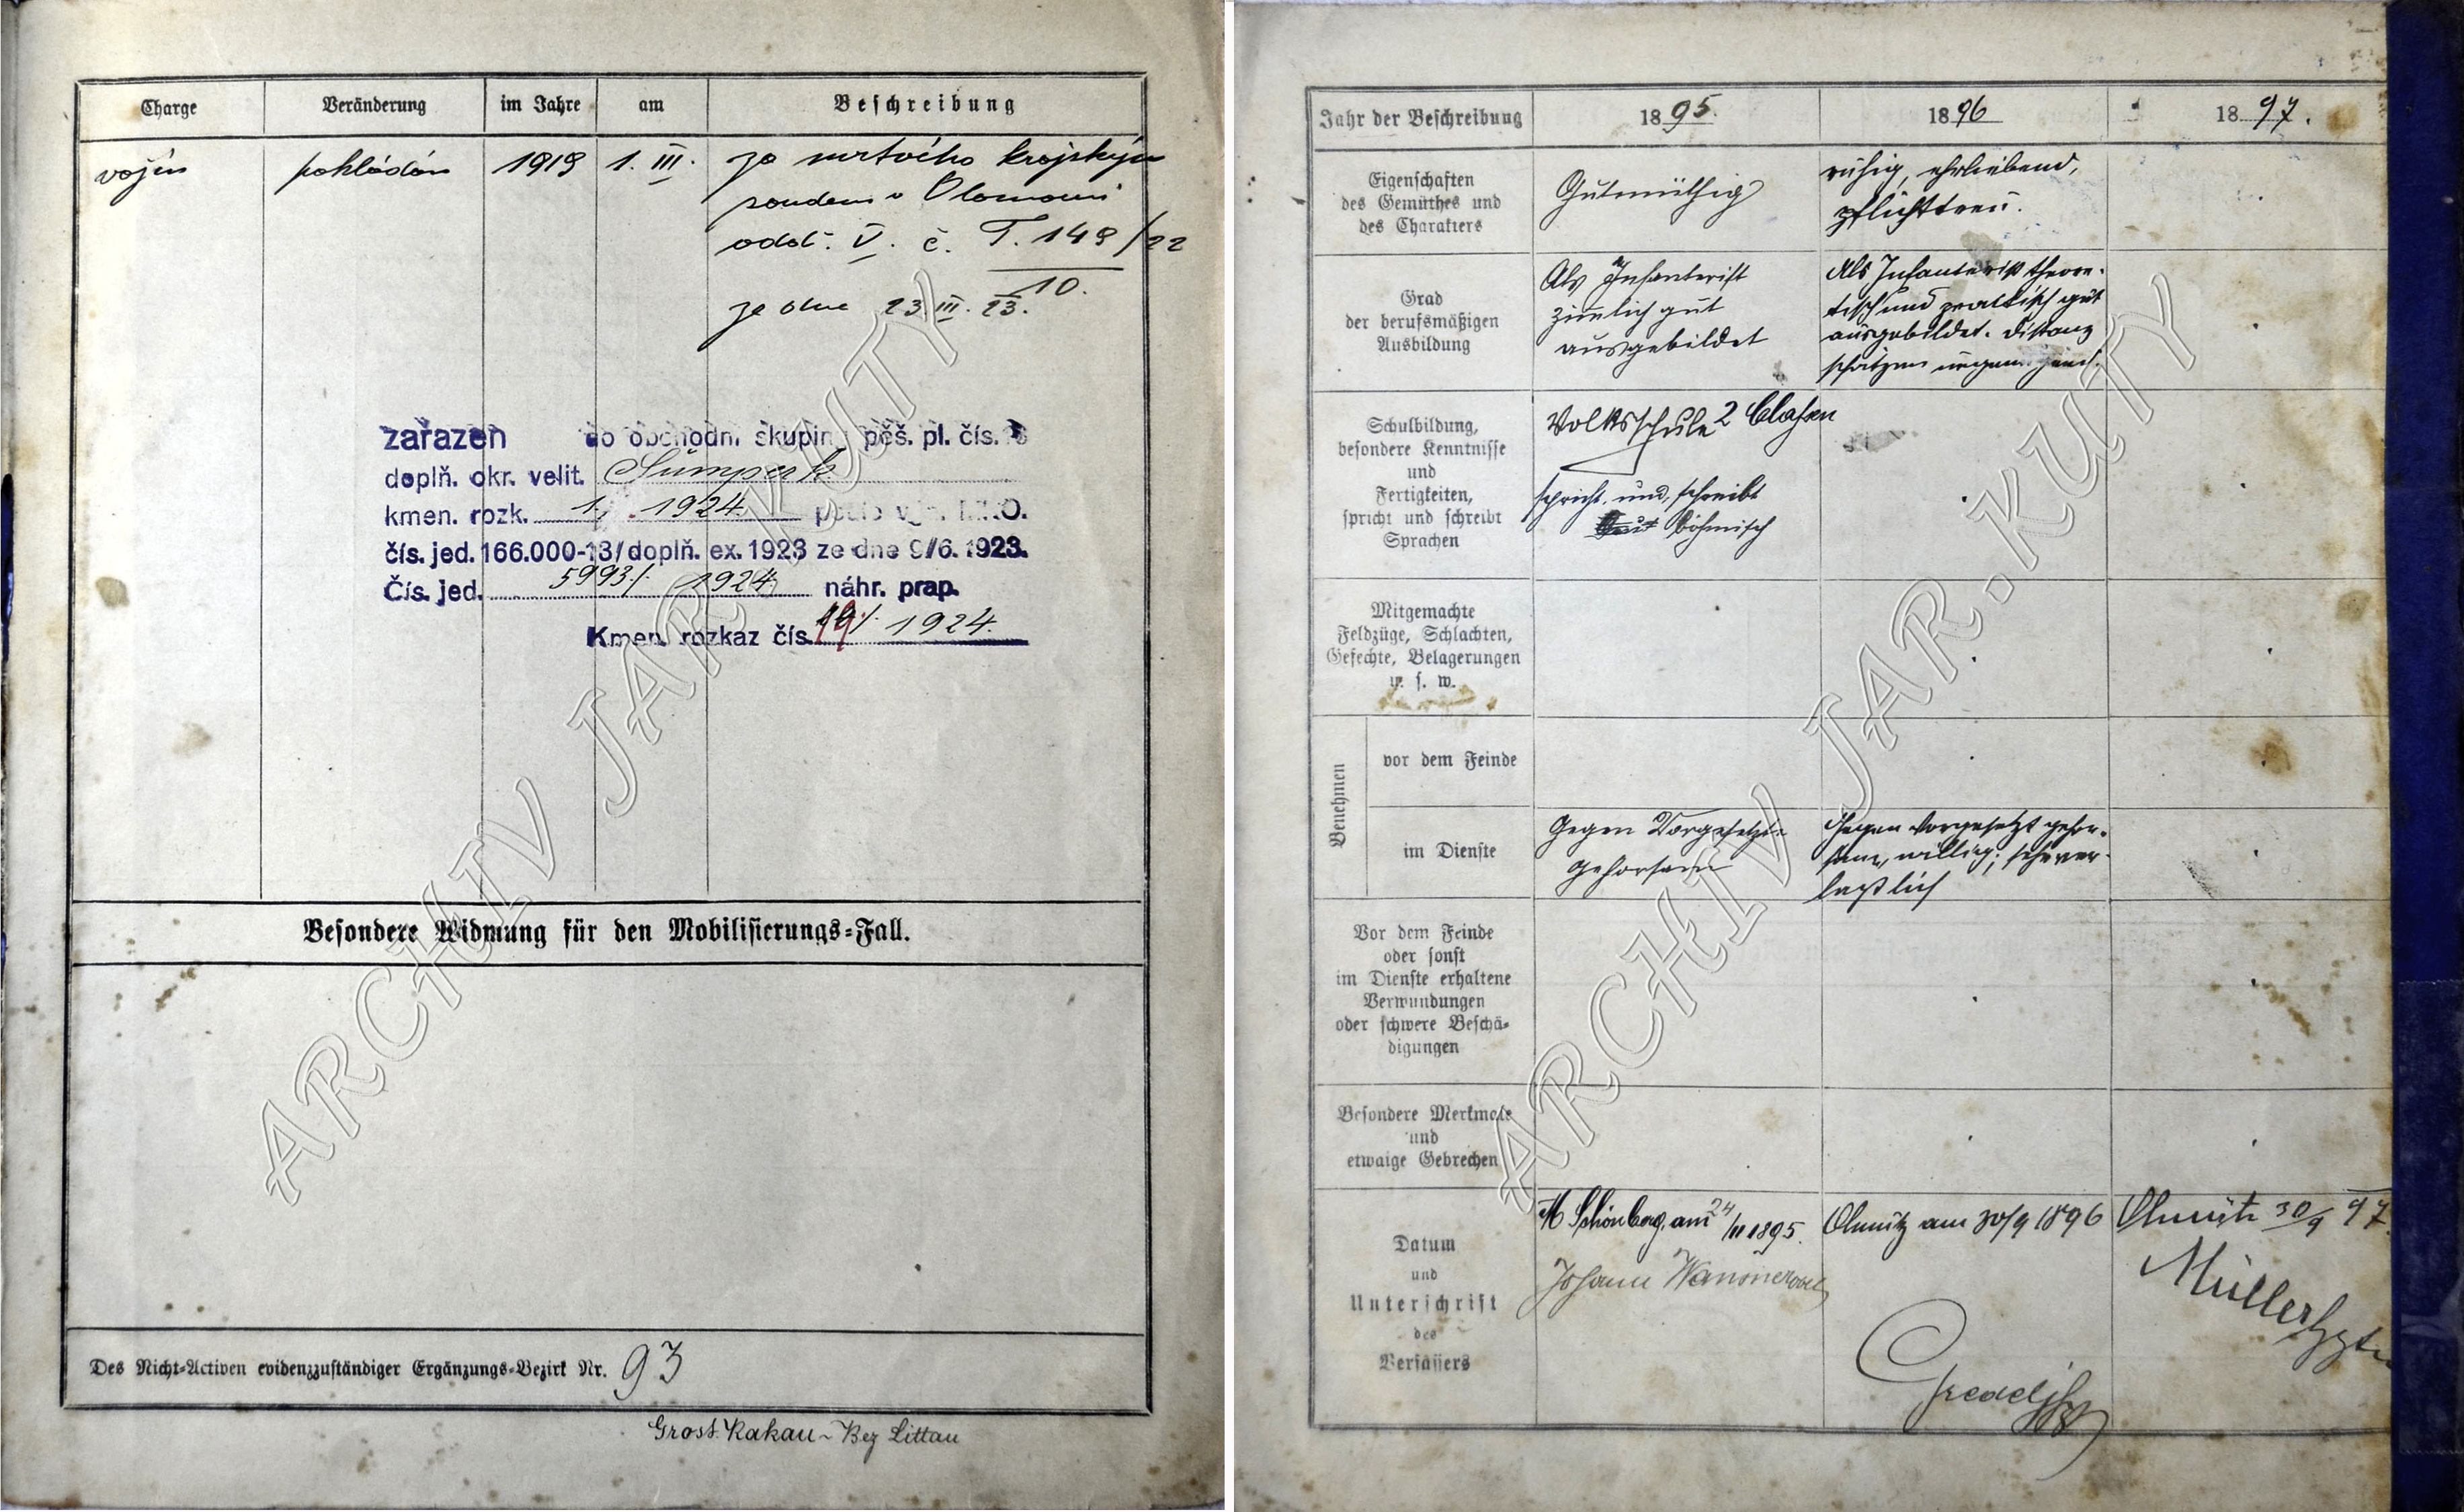 Charge Veränderung im Jahre am Beschreibung
vojín pokládán 1919 1. III. za mrtvého krajským
soudem v Olomouci
odděl. V. č. T. 149/22
10.
ze dne 23. III. 23.
zařazen do obchodní skupiny pěš. pl. čís.
doplň. okr. velit. Šumperk
kmen. rozk. 1. 1924
čís. jed. 166.000-13/doplň. ex. 1923 ze dne 9/6. 1923.
Čís. jed. 5993/. 1924 náhr. prap.
Kmen. rozkaz čís. 1924.
Besondere Widmung für den Mobilisierungs-Fall.
Des Nicht-Activen evidenzzuständiger Ergänzungs-Bezirk Nr. 93
Gross Rakau - Bez Littau
Jahr der Beschreibung 1895. 1896 1897.
Eigenschaften
des Gemüthes und
des Charakters
Gutmüthig
ruhig, ehrliebend,
pflichttreu.
Grad
der berufsmäßigen
Ausbildung
Als Infanterist
ziemlich gut
ausgebildet
Als Infanterist theore-
tisch und praktisch gut
ausgebildet. Distanz
schätzen
Schulbildung,
besondere Kenntnisse
und
Fertigkeiten,
spricht und schreibt
Sprachen
Volksschule 2 Classen
spricht und schreibt
böhmisch
Mitgemachte
Feldzüge, Schlachten,
Gefechte, Belagerungen
u. s. w.
Benehmen
vor dem Feinde
im Dienste
Gegen Vorgesetzte
gehorsam
Gegen Vorgesetzt gehor-
sam, willig; sehr ver-
laßlich
Vor dem Feinde
oder sonst
im Dienste erhaltene
Verwundungen
oder schwere Beschä-
digungen
Besondere Merkmale
und
etwaige Gebrechen
Datum
und
Unterschrift
des
Verfassers
M Schönberg, am 24/11 1895.
Johann
Olmütz am 30/9 1896
Olmütz 30/9 97.
Müller Hptm
ARCHIV JAR. KUTY
ARCHIV JAR. KUTY